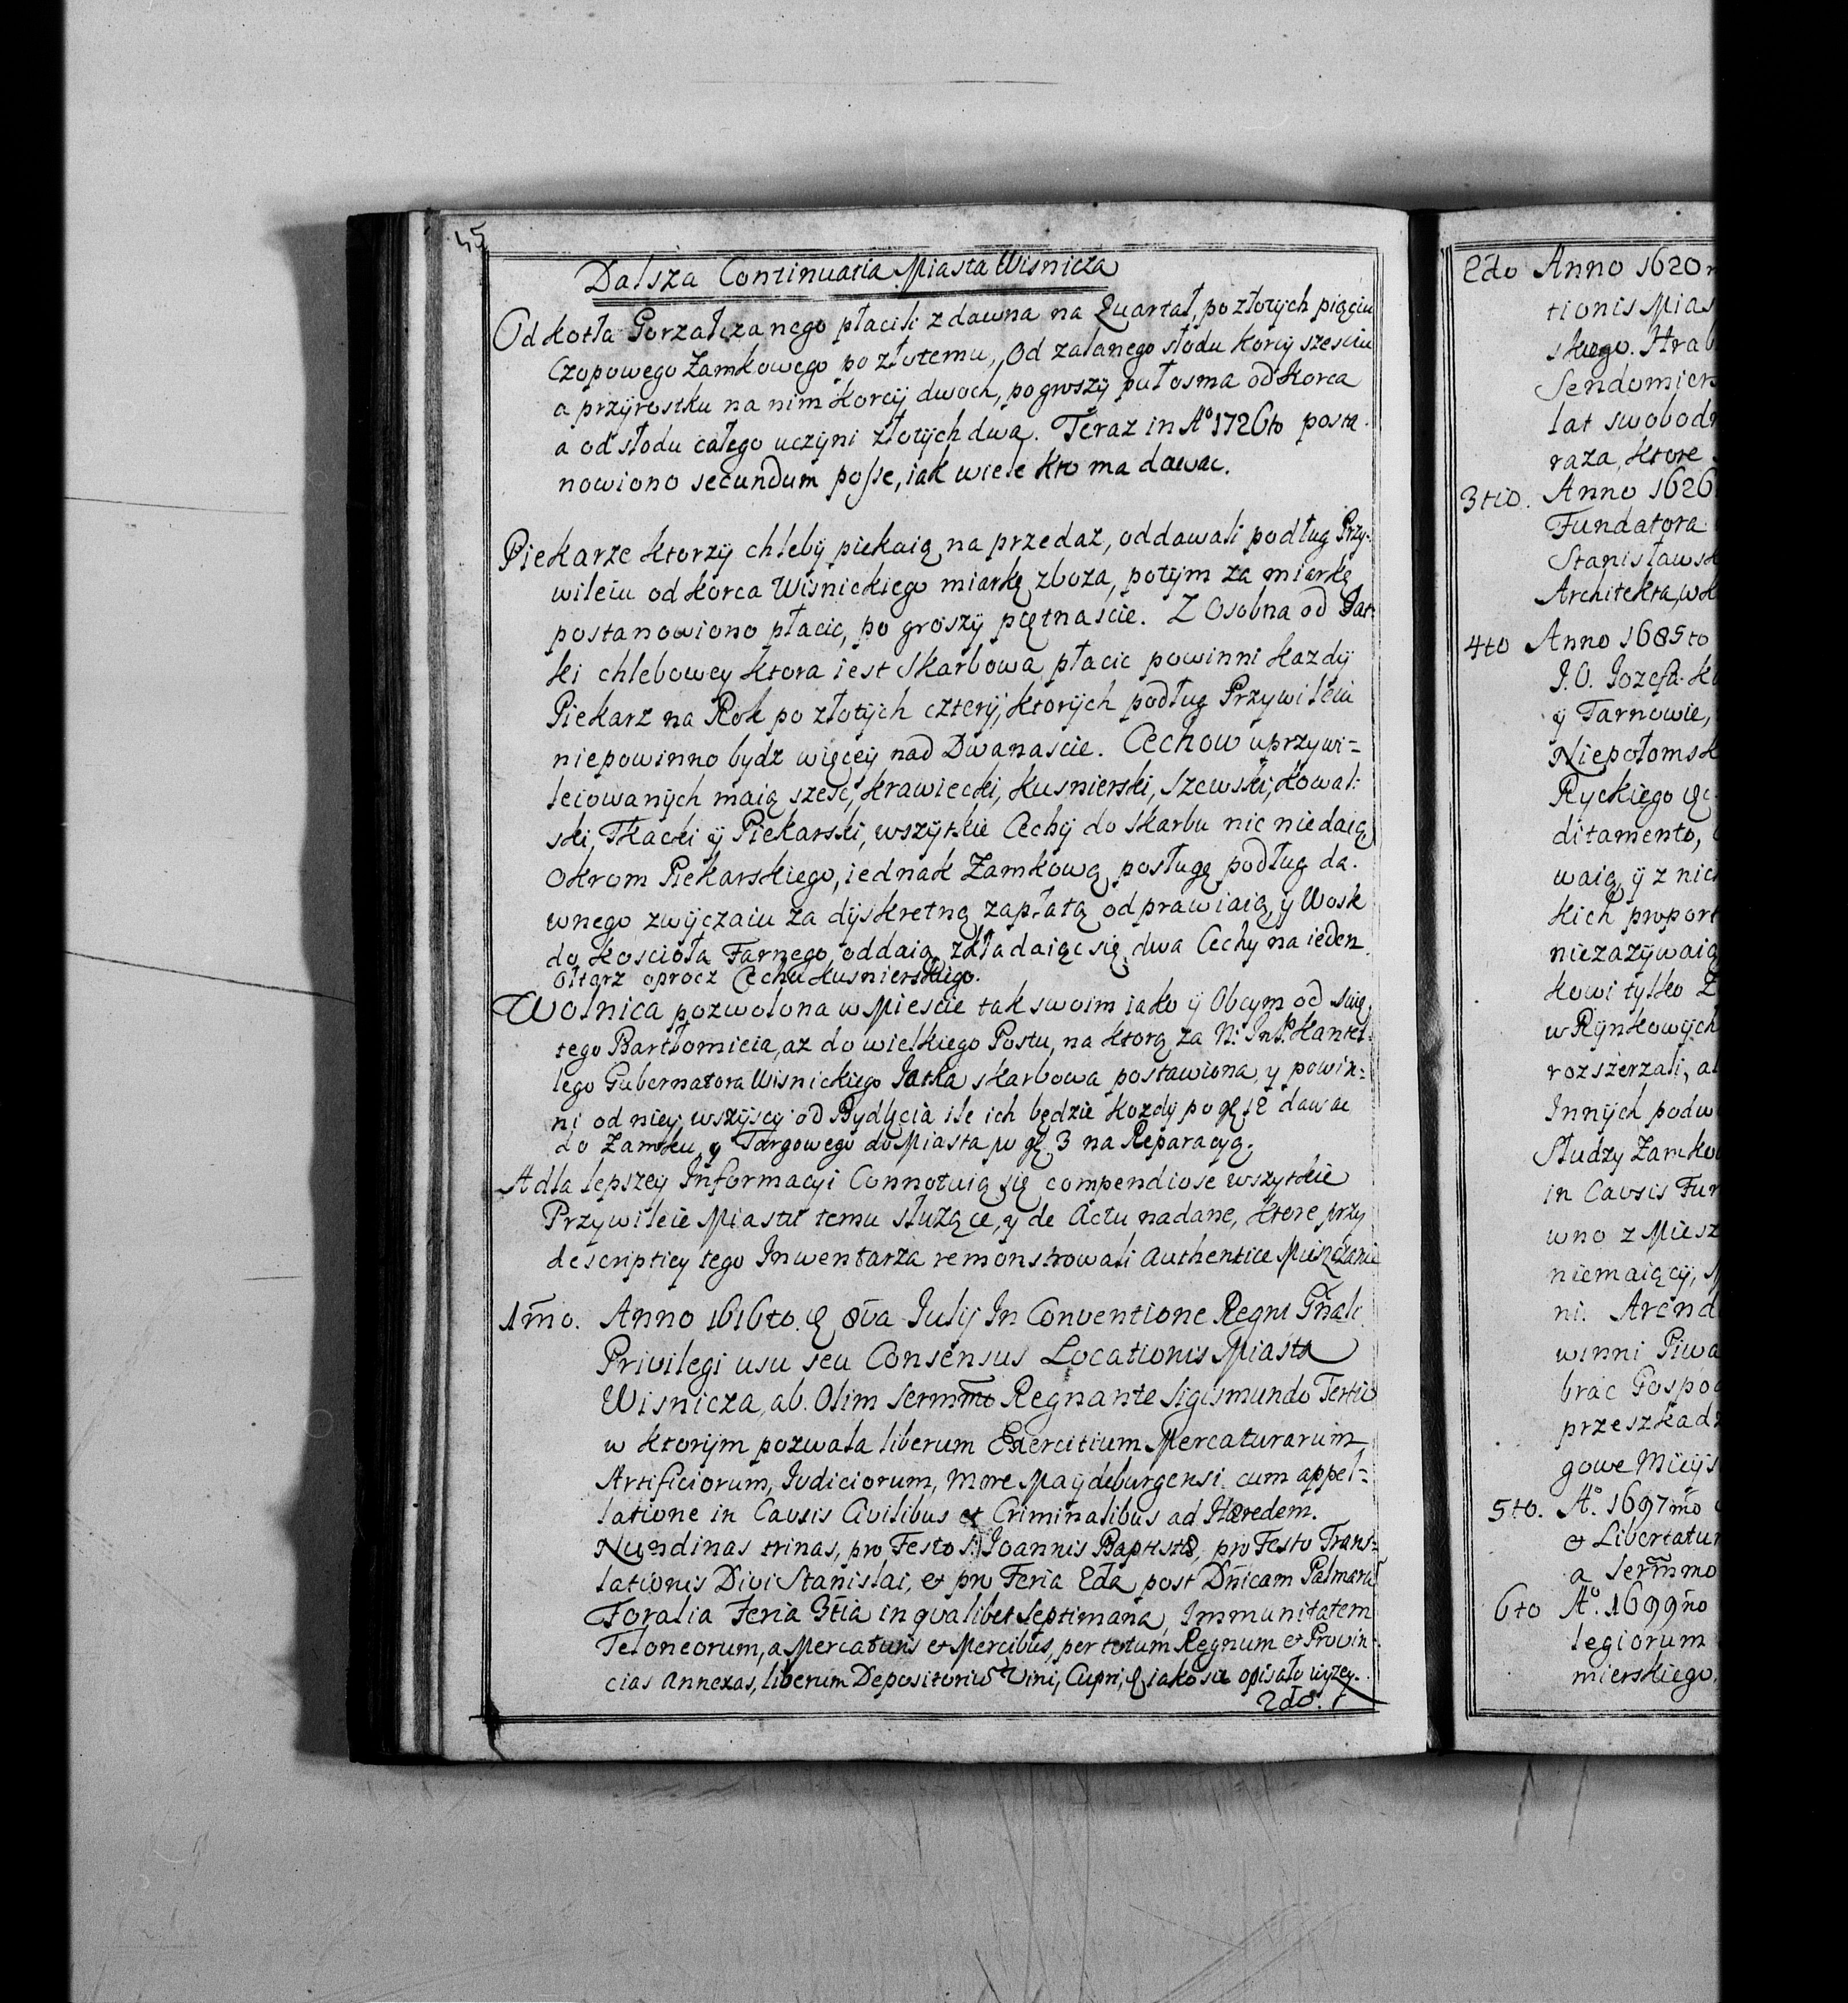 45
Dalsza Continuatia Miasta Wisnicza
Od kotła Gorzałczanego płacili z dawna na Quartał, po złotych pięciu
Czopowego Zamkowego po złotemu, Od zalanego słodu korcy szesciu
a przyrostku na nim korcy dwoch, po groszy puł osma od korca
a od słodu całego uczyni złotych dwa. Teraz in Aº 1726to posta-
nowiono secundum posse, iak wiele kto ma dawac.
Piekarze ktorzÿ chlebÿ piekaią na przedaz, oddawali podług Przy-
wileiu od korca Wisnickiego miarkę zboza, potÿm za miarkę
postanowiono płacic, po groszÿ piętnascie. Z Osobna od Jat-
ki chlebowey ktora iest Skarbowa płacic powinni kazdÿ
Piekarz na Rok po złotÿch czterÿ, ktorÿch podług Przywileiu
niepowinno bydz więceÿ nad Dwanascie. Cechow uprzywi=
leiowanÿch maią szesc, krawiecki, kusnierski, Szewski, kowal:
ski, Tkacki ÿ Piekarski, wszÿtkie Cechÿ do Skarbu nic niedaią
okrom Piekarskiego, iednak Zamkową posługę podług da-
wnego zwÿczaiu za dÿskretną zapłatą odprawiaią, ÿ Wosk
do koscioła Farnego oddaią, zkładaiąc się dwa Cechy na ieden
Ołtarz oprocz Cechu kusnierskiego.
Wolnica pozwolona w Miescie tak swoim iako ÿ Obcym od Swię-
tego Bartłomieia, az do wielkiego Postu, na ktorą za
lego Gubernatora Wisnickiego Jatka skarbowa postawiona, y powin=
ni od nieÿ wszÿscÿ od Bydlęcia ile ich będzie kozdÿ po gr 12 dawac
do Zamku, y Targowego do Miasta po gr 3 na Reparacyą.
A dla lepszey Informacyi Connotuią się compendiose wszytkie
Przywileie Miastu temu słuzące, y de Actu nadane, ktore przy
descripticy tego Inwentarza remonstrowali Authentice Miesczanie
1mo. Anno 1616to. 8va Julij In Conventione Regni Gñali
Privilegi usu seu Consensus Locationis Miasta
Wisnicza, ab Olim Sermmo Regnante Sigismundo Tertio
w ktorÿm pozwala liberum Exercitium Mercaturarum
Artificiorum, Judiciorum, More Maÿdeburgensi cum appel=
latione in Causis Civilibus et Criminalibus ad Hæredem.
Nundinas trinas, pro Festo S. Joannis Baptistæ, pro Festo Trans=
lationis Divi Stanislai, et pro Feria 2da post Dñicam Palmaru
Foralia Feria 3tia in qualibet Septimana, Immunitatem
Teloneorum, a Mercaturis et Mercibus, per totum Regnum et Provin-
cias Annexas, liberum Depositoriu Vini, Cupri, iako sie opisało wyzey.
2do.
2do Anno 1620
tionis Mias
skiego. Hrab
Sendomiers
lat swobod
raza, ktore
3tio. Anno 1626
Fundatora
Stanisławsk
Architekta, wk
4to Anno 1685to
J. O. Jozefa
ÿ Tarnowie,
Niepołomsk
Ryckiego
ditamento,
waią ÿ z nich
kich proport
niezazÿwaią
kowi tylko Z
w Rÿnkowÿch
rozszerzali, al
Innÿch podw
Słudzy Zamkow
in Causis Fur
wno z Miesz
niemaiącÿ,
ni. Arend
winni Piwa
brac Gospod
przeszkadz
gowe Mieÿs
5to. Aº. 1697mo
et Libertatum
a Sermmo
6to Aº. 1699no
legiorum
mierskiego,